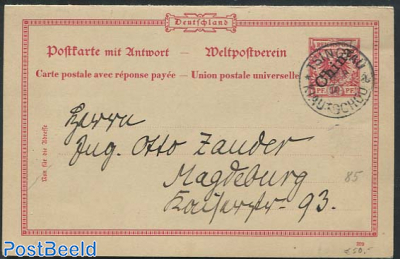 Deutschland
Postkarte mit Antwort — Weltpostverein
Carte postale avec réponse payée — Union postale universelle
China
TSINGTAU
KIAUTSCHOU
10 PF
Nur für die Adresse
Herrn
Jng. Otto Zander
Magdeburg
Kaiserstr. 93.
85
PostBeeld